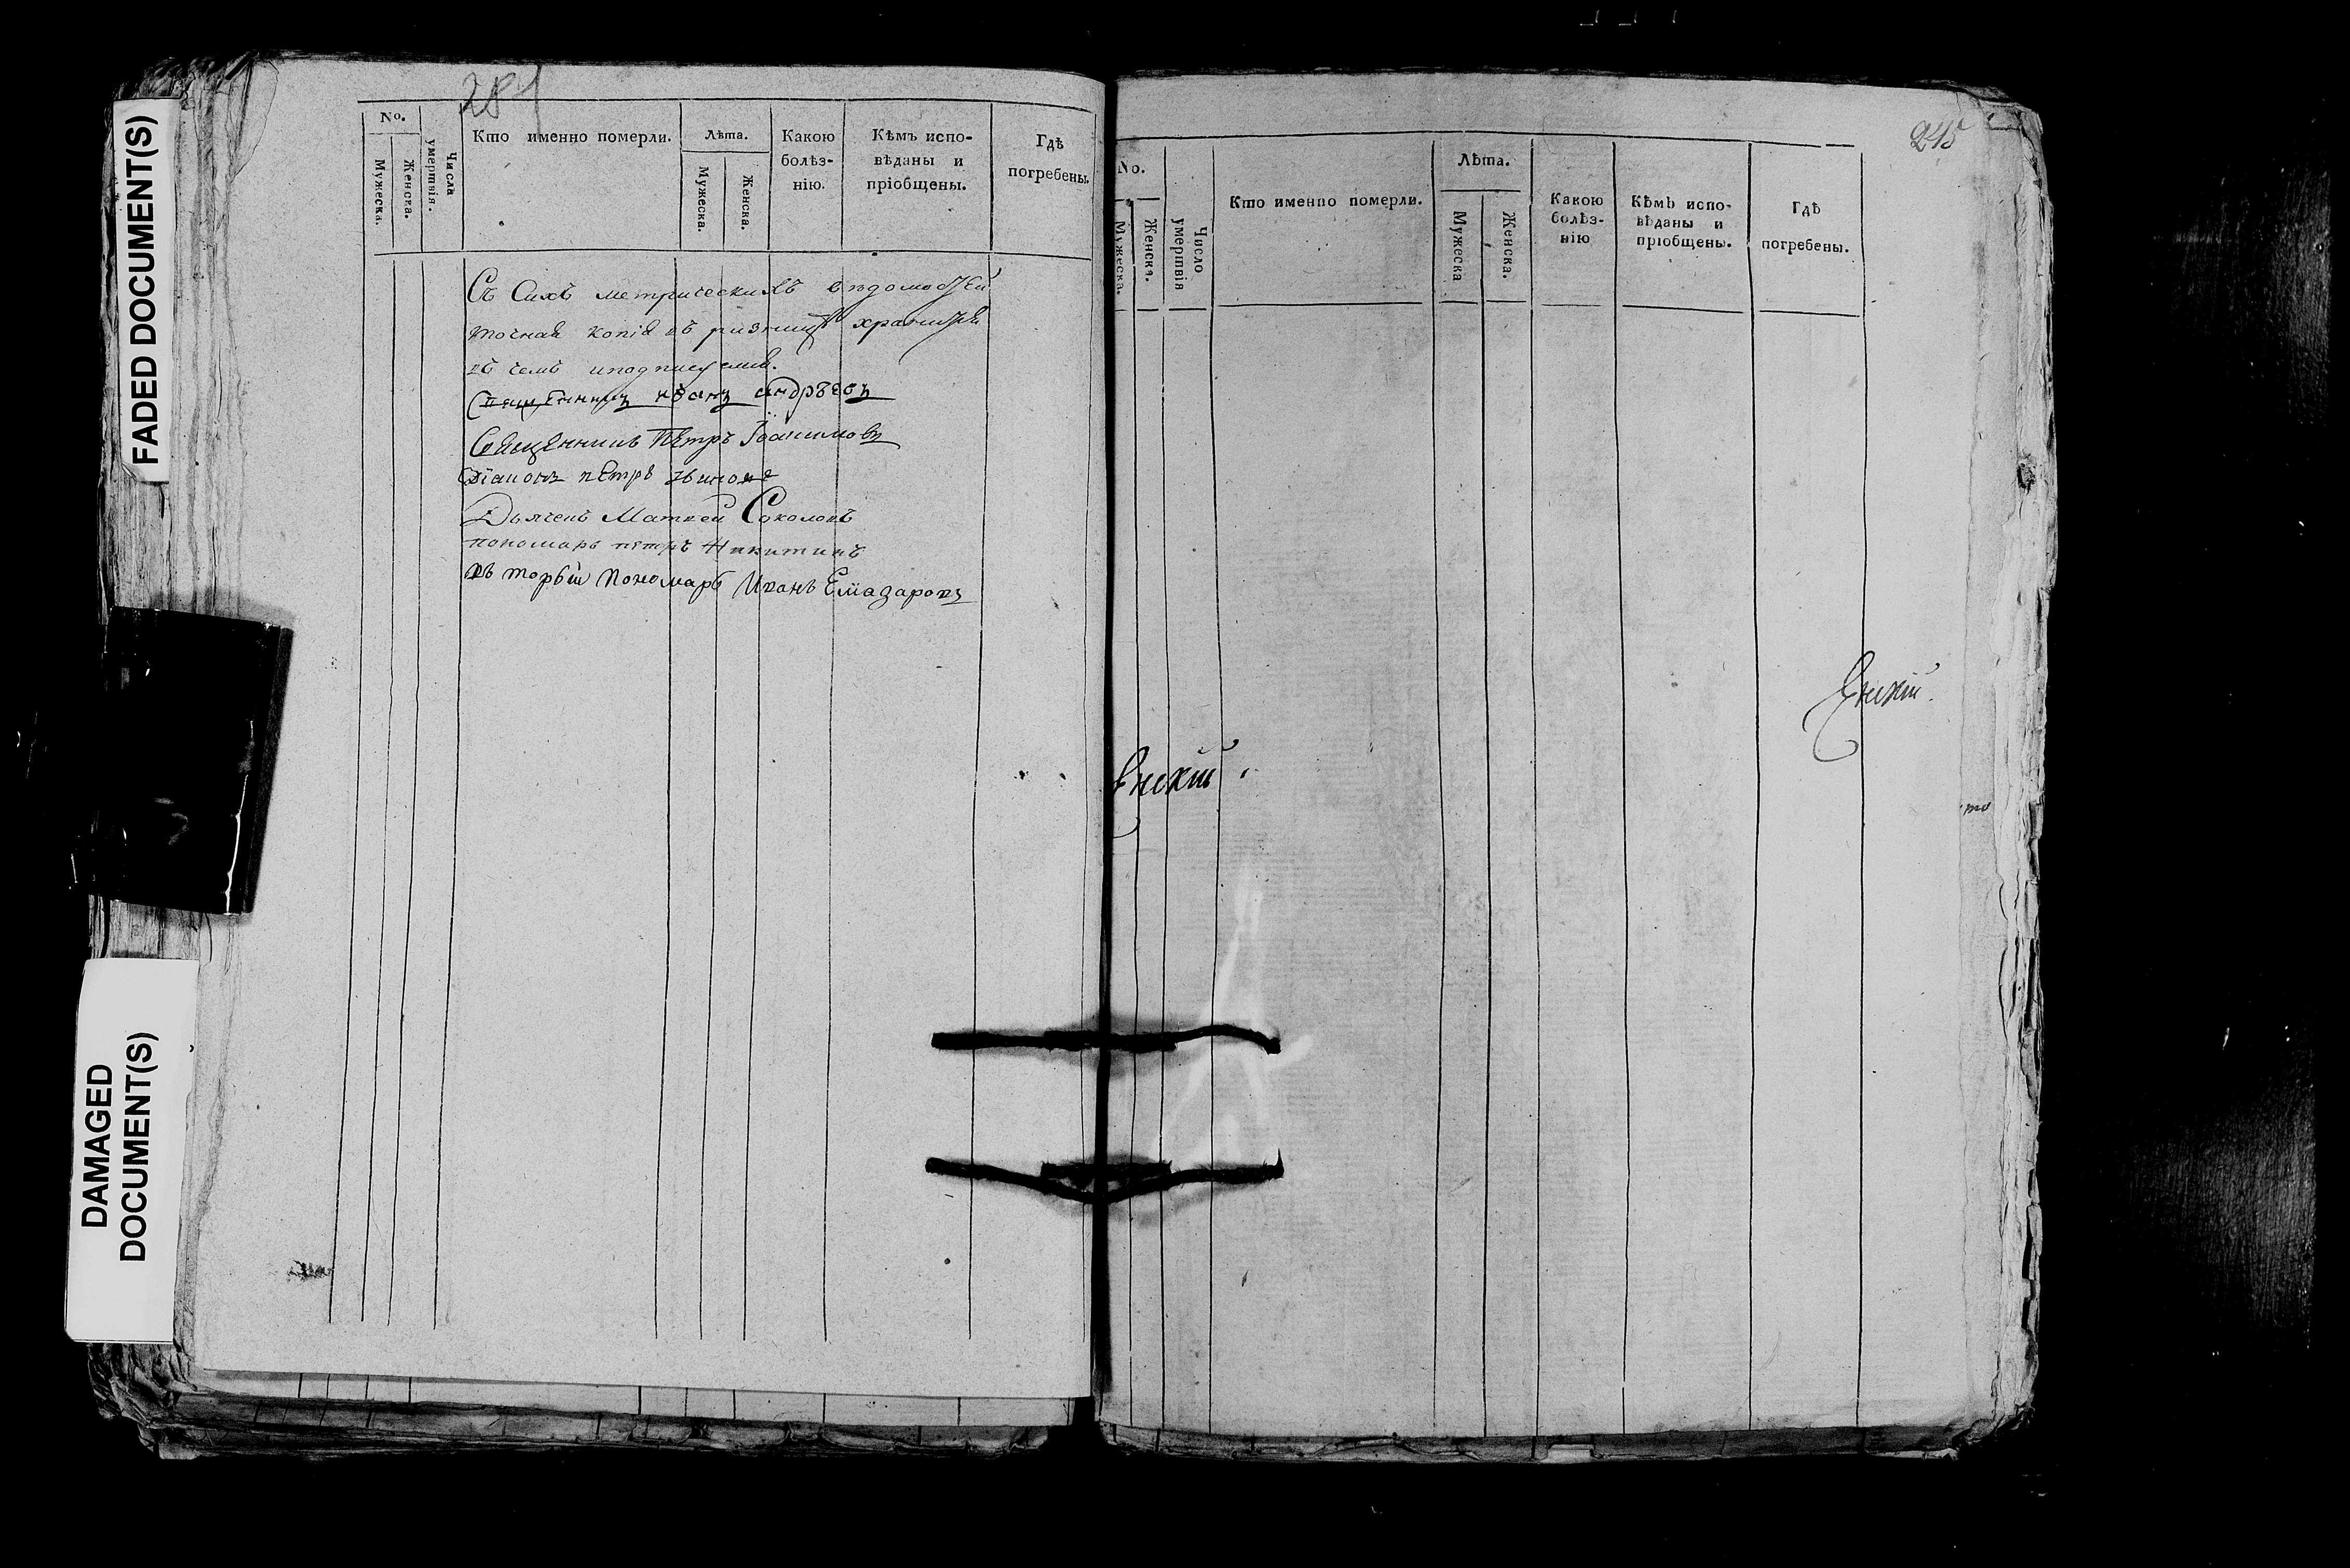 FADED DOCUMENT(S)
DAMAGED
DOCUMENT(S)
281
No.
Мужеска.
Женска.
Числа
умертвія.
Кто именно померли.
Лѣта.
Мужеска.
Женска.
Какою
болѣз-
нію.
Кѣмъ испо-
вѣданы и
пріобщены.
Гдѣ
погребены.
Съ Сихъ метрическихъ вѣдомостей
точная копія въ ризницѣ хранится
въ чемъ иподписуемся.
Священникъ иванъ андрѣевъ
Священникъ Петръ Іоакимовъ
Діаконъ петръ
Дьячекъ Матвей Соколовъ
пономарь петръ Никитинъ
въторый Пономарь Иванъ
245
No.
Мужеска.
Женска.
Число
умертвія
Кто именно померли.
Лѣта.
Мужеска
Женска.
Какою
болѣз-
нію
Кѣмъ испо-
вѣданы и
пріобщены.
Гдѣ
погребены.